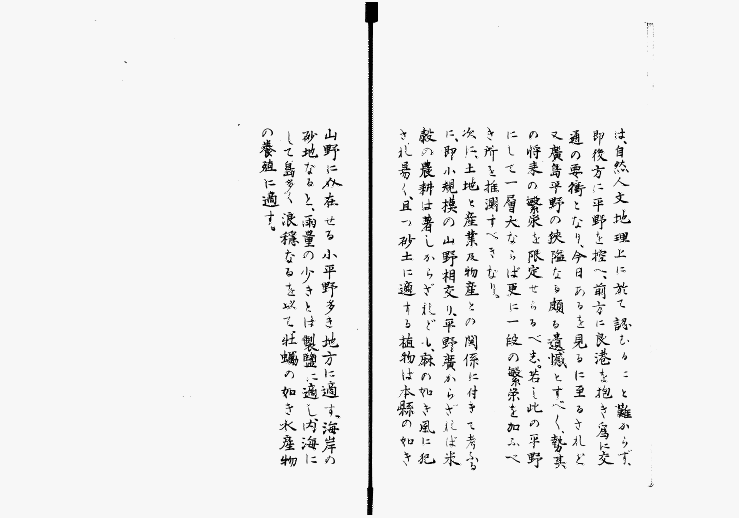 は、自然人文地理上に於て認むること難からず、
即後方に平野を控へ、前方に良港を抱き為に交
通の要衝となり、今日あるを見るに至るされど
又廣島平野の狹隘なる頗る遺憾とすべく、勢其
の将来の繁栄を限定せらるべき。若し此の平野
にして一層大ならば更に一段の繁栄を加ふべ
き所を推測すべきなり。
次に、土地と産業及物産との関係に付きて考ふる
に、即小規模の山野相交り、平野廣からざれば米
穀の農耕は著しからざれども、麻の如き風に犯
され易く、且つ砂土に適する植物は本縣の如き
山野に放在せる小平野多き地方に適す。海岸の
砂地なると、雨量の少きとは製鹽に適し、内海に
して島多く浪穏なるを以て、牡蠣の如き水産物
の養殖に適す。